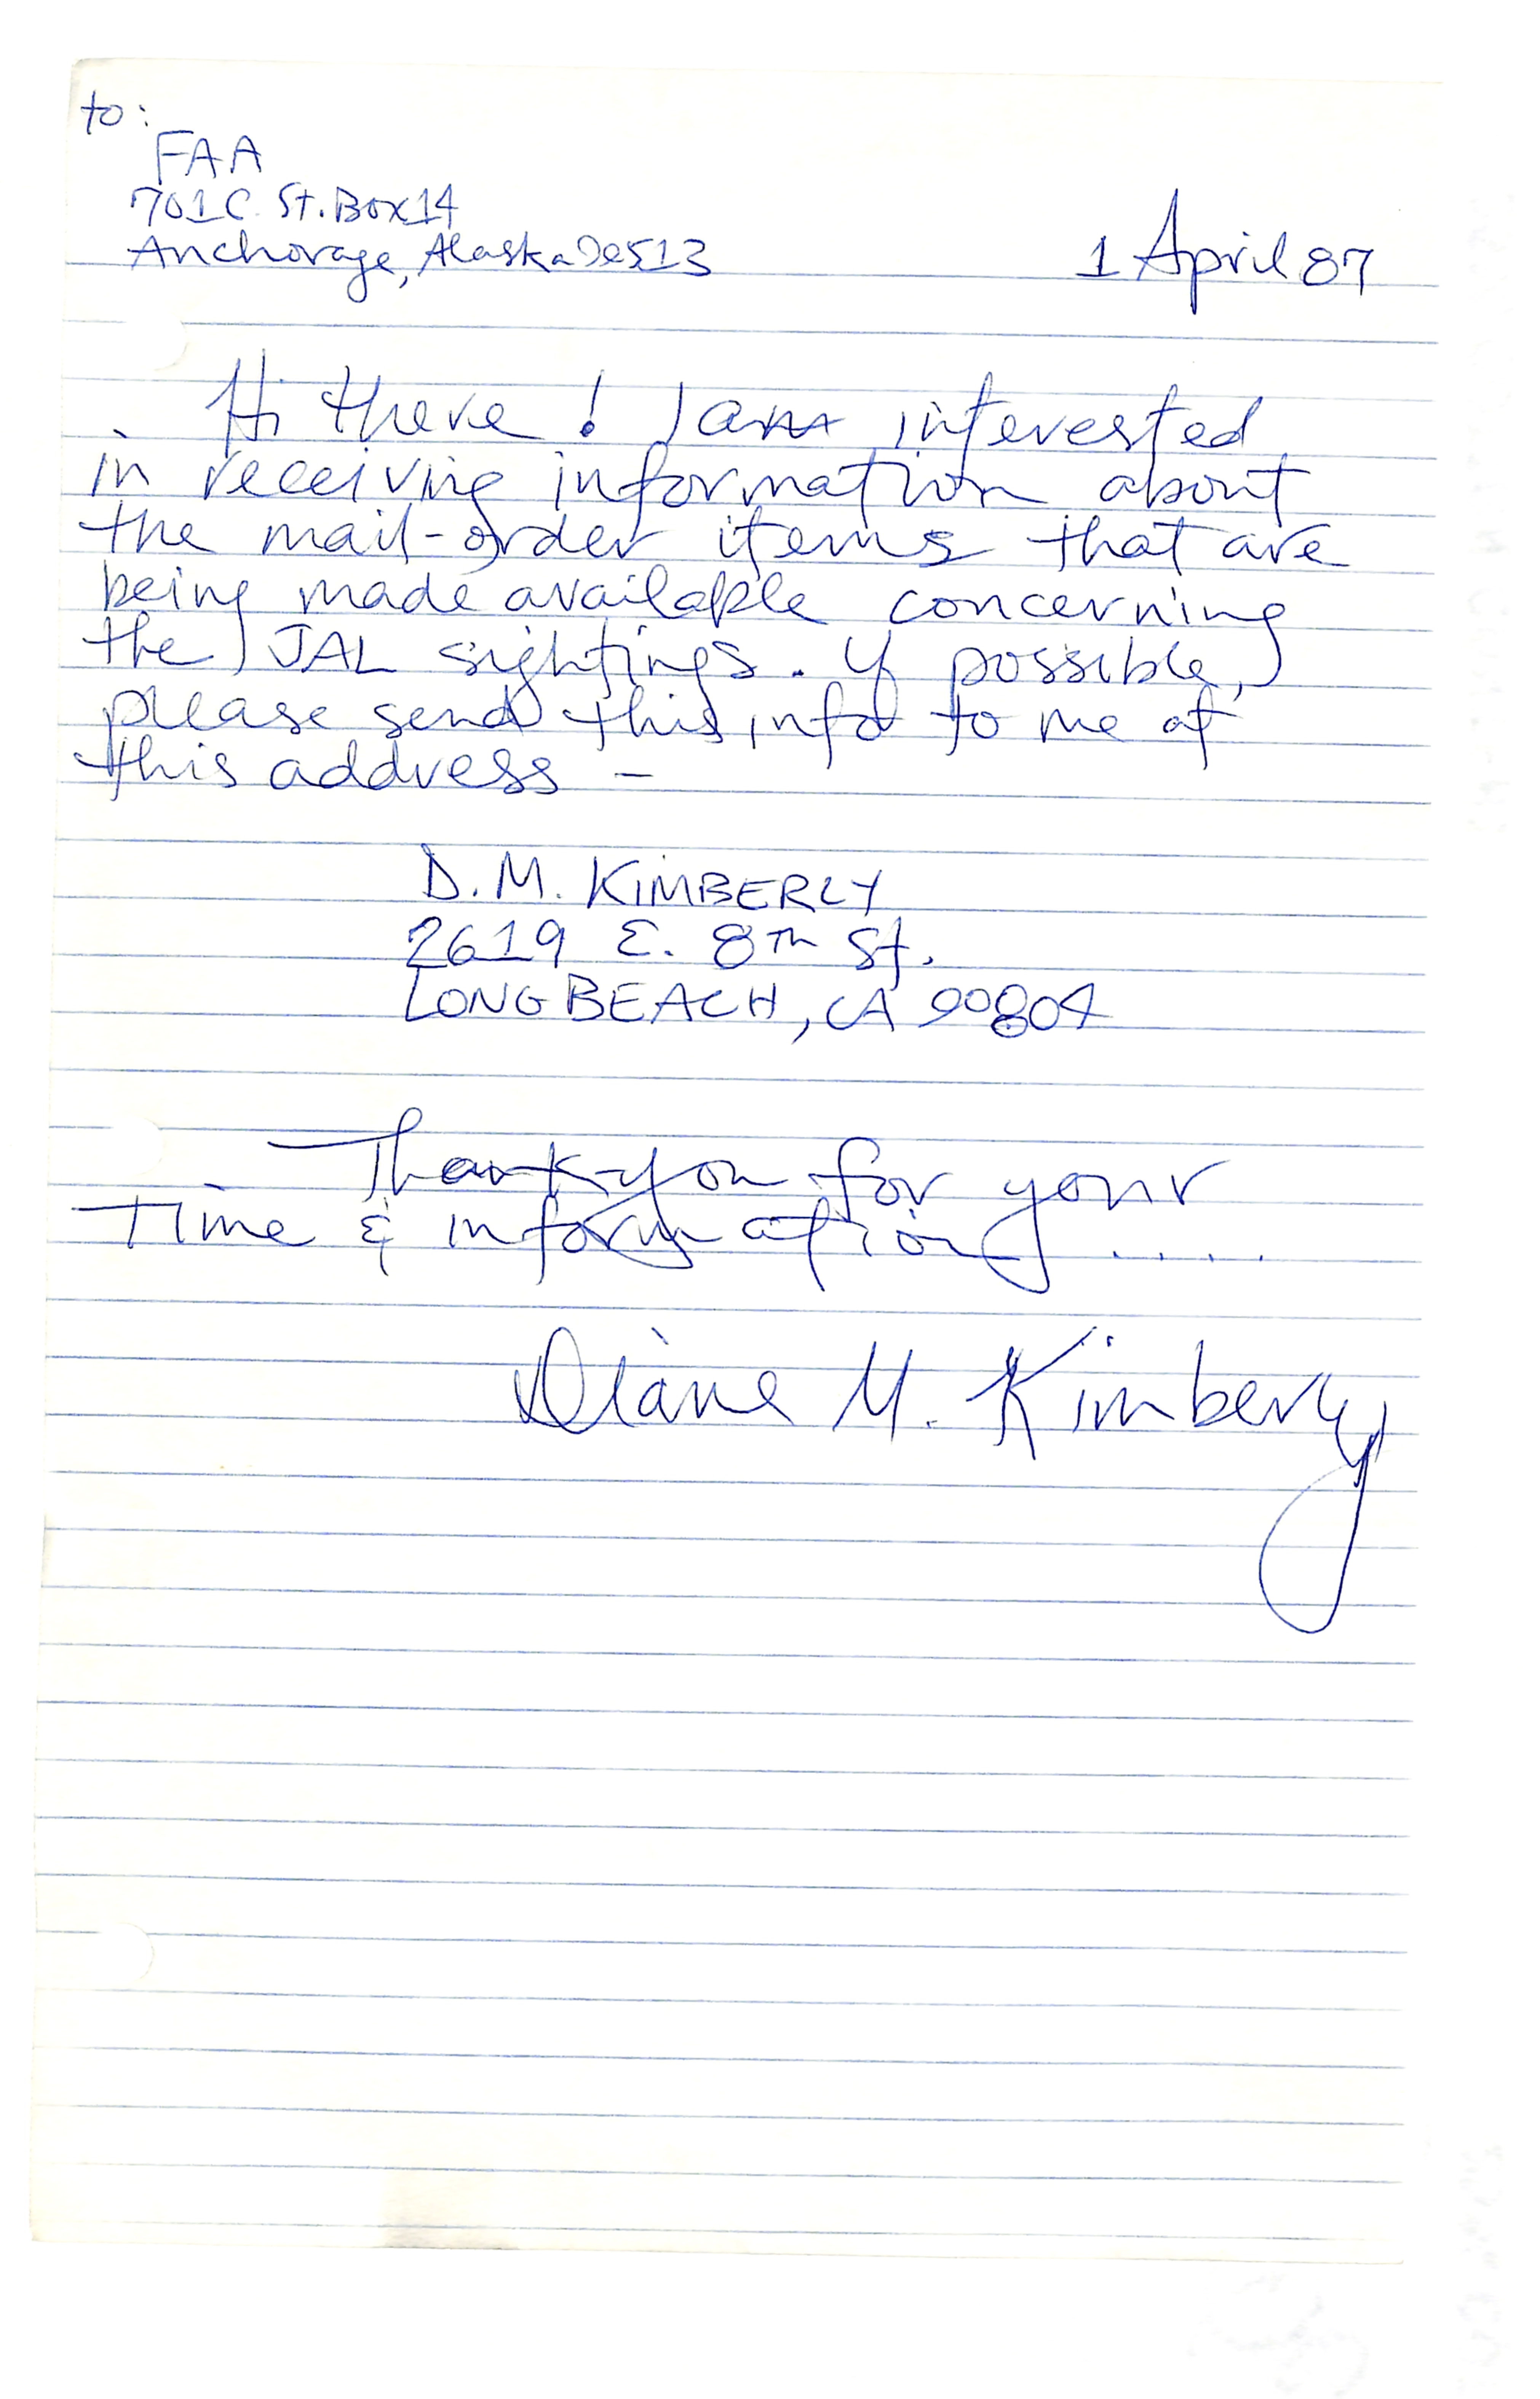 to:
FAA
701 C. St. Box 14
Anchorage, Alaska 99513
1 April 87
Hi there! I am interested
in receiving information about
the mail-order items that are
being made available concerning
the JAL sightings. If possible,
please send this info to me at
this address -
D.M. KIMBERLY
2619 E. 8TH St.
LONG BEACH, CA 90804
Thank-you for your
Time & information .....
Diane M. Kimberly